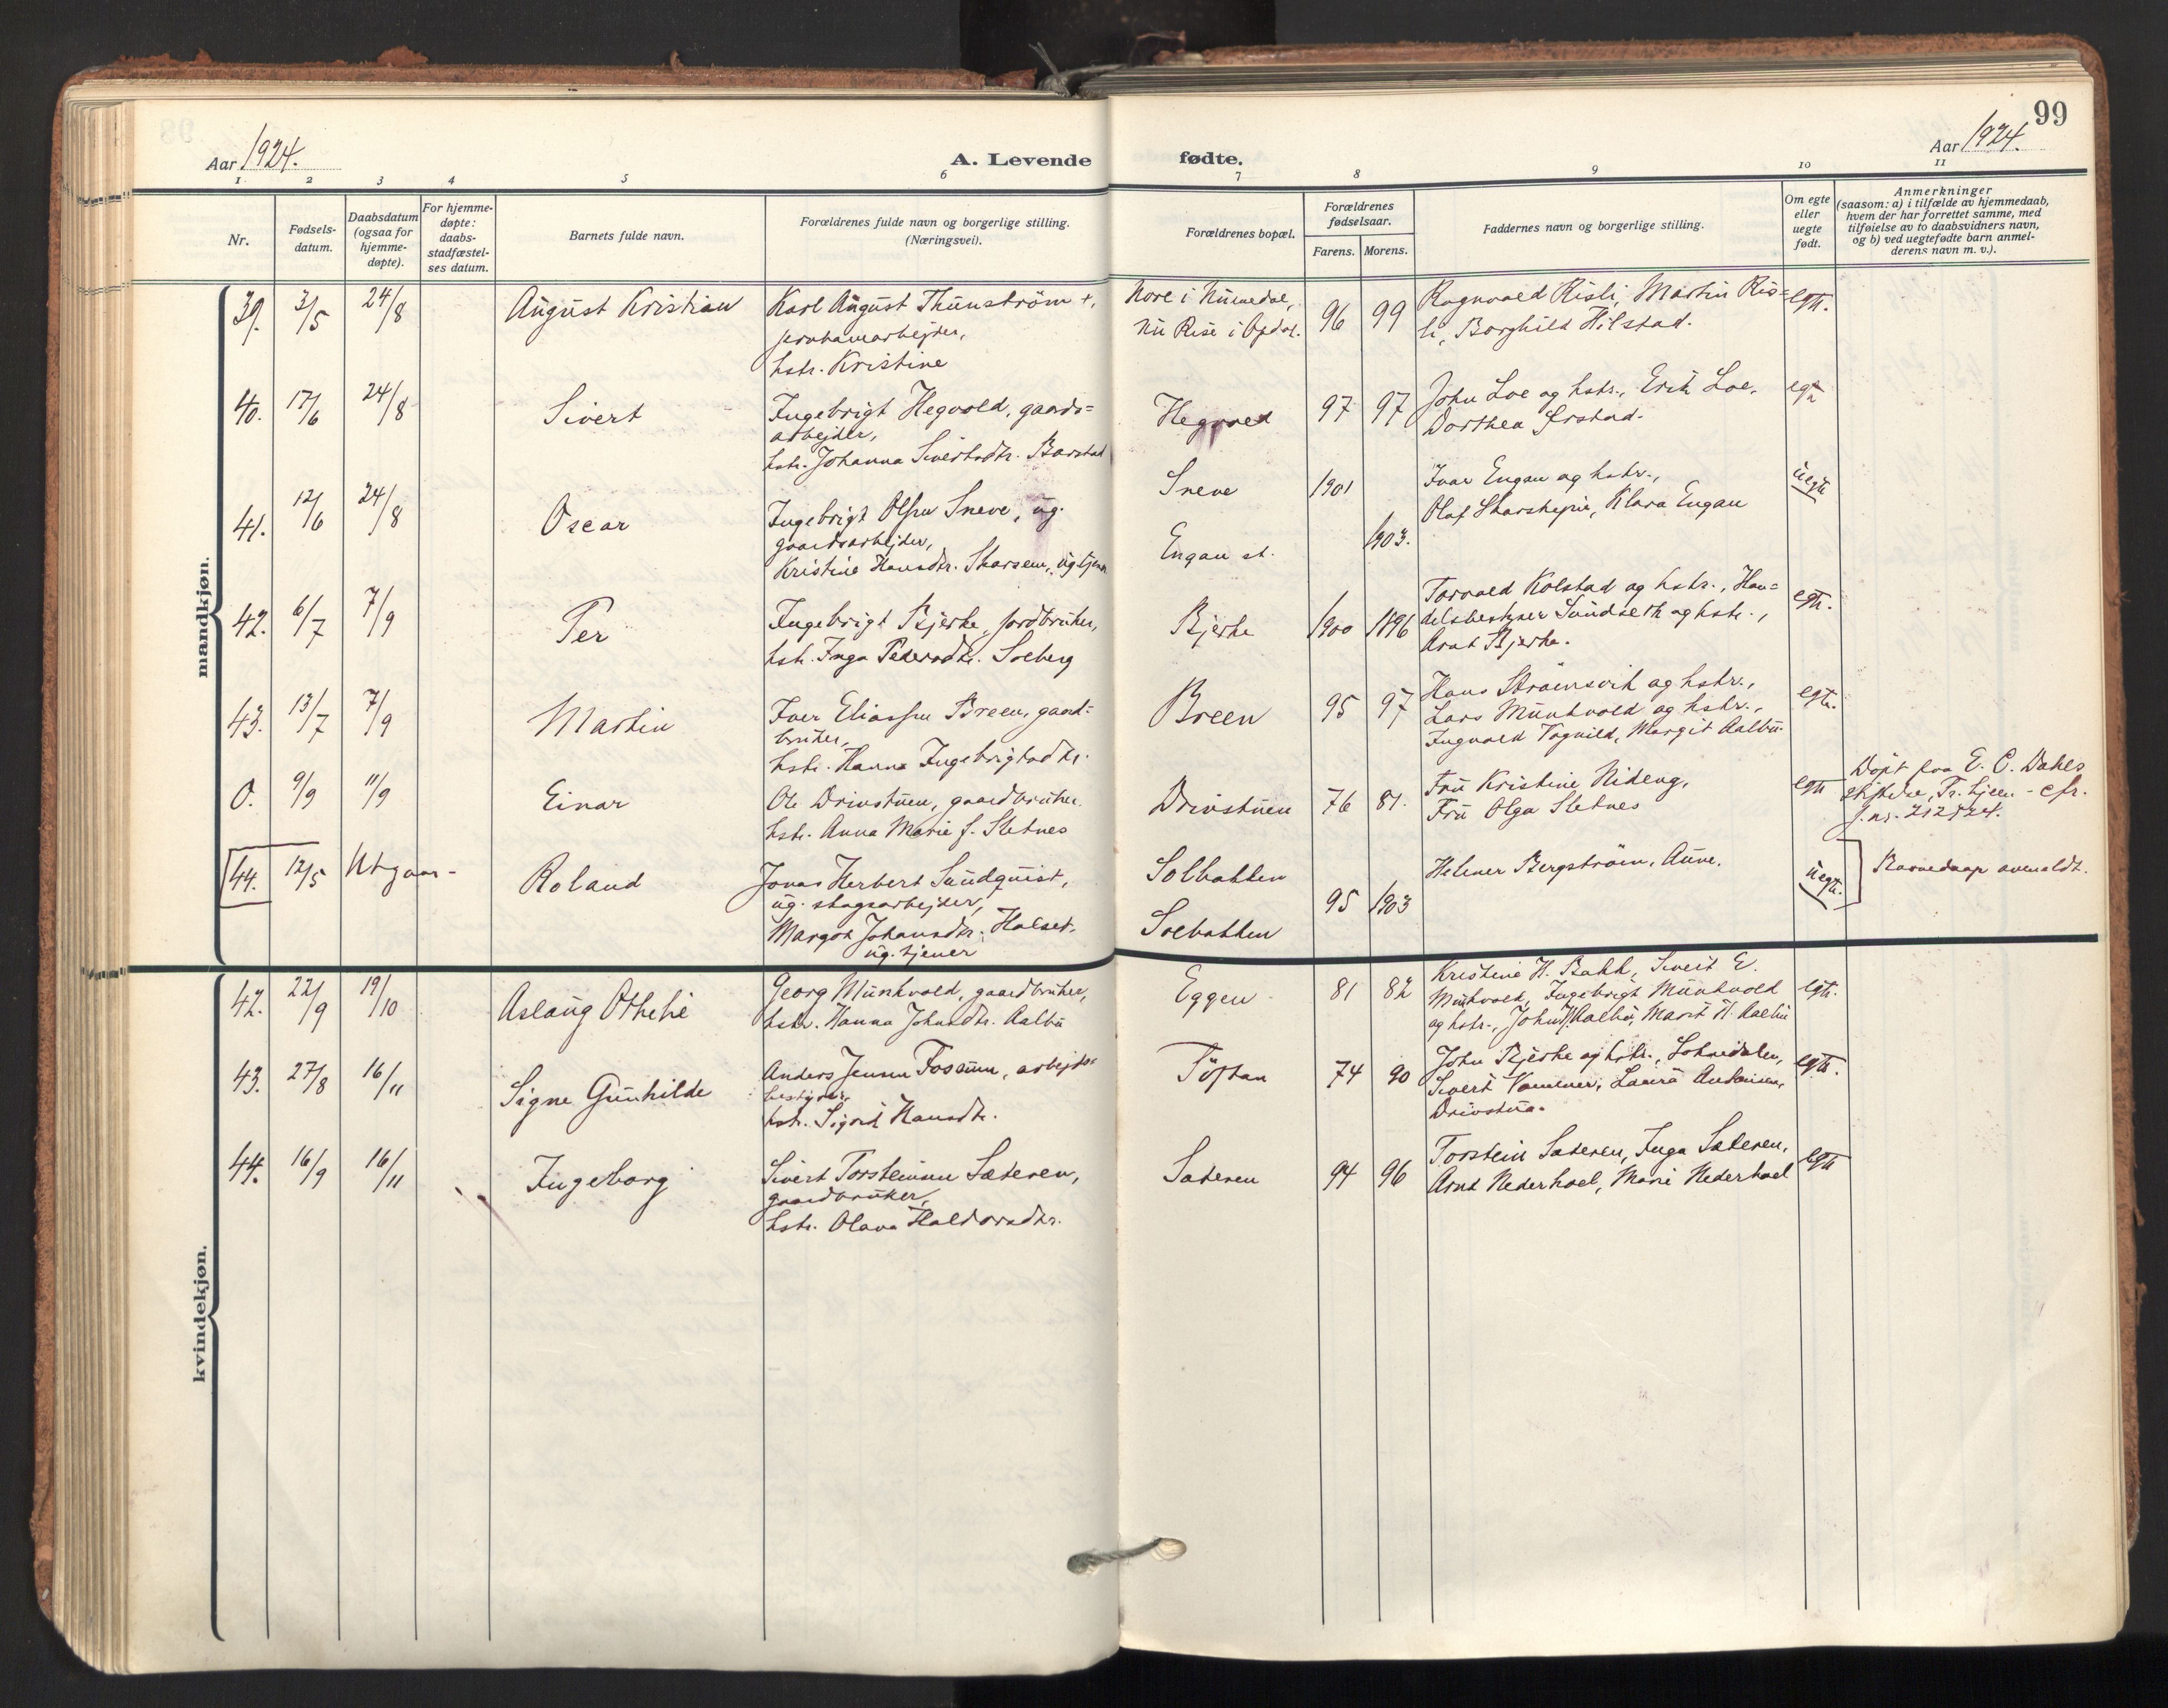 99
Aar 1924.
A. Levende
fødte.
Aar 1924.
1 2 3 4 5 6 7 8 9 10 11
Nr.
Fødsels-
datum.
Daabsdatum
(ogsaa for
hjemme-
døpte).
For hjemme-
døpte:
daabs-
stadfæstel-
ses datum.
Barnets fulde navn.
Forældrenes fulde navn og borgerlige stilling.
(Næringsvei).
Forældrenes bopæl.
Forældrenes
fødselsaar.
Farens. Morens.
Faddernes navn og borgerlige stilling.
Om egte
eller
uegte
født.
Anmerkninger
(saasom: a) i tilfælde av hjemmedaab,
hvem der har forrettet samme, med
tilføielse av to daabsvidners navn,
og b) ved uegtefødte barn anmel-
derens navn m. v.).
mandkjøn.
39. 3/5 24/8 August Kristian
Karl August Thunström +,
hstr. Kristine
Nore i Numedal,
nu Rise i Opdal.
96 99
Ragnvald Risli, Martin Ris=
li, Borghild Hilstad.
egte.
40. 17/6 24/8 Sivert
Ingebrigt Hegvold, gaards=
arbejder,
hstr. Johanna Sivertsdtr. Barstad
Hegvold
97 97
John Loe og hstr., Erik Loe,
Dorthea Ørstad.
egte
41. 12/6 24/8 Oscar
Ingebrigt Olsen Sneve, ug.
gaardsarbejder,
Kristine Hansdtr. Skarsem, ug. tjener
Sneve
Engan st.
1901
1903.
Ivar Engan og hstr.,
Olaf Skarsheim, Klara Engan
uegte
42. 6/7 7/9 Per
Ingebrigt Bjerke, jordbruker,
hstr. Inga Pedersdtr. Solberg
Bjerke
1900 1896
Torvald Kolstad og hstr., Han=
delsbestyrer Sundseth og hstr.,
Arnt Bjerke.
egte.
43. 13/7 7/9 Martin
Iver Eliassen Breen, gaard=
bruker,
hstr. Hanna Ingebrigtsdtr.
Breen
95 97
Hans Strømsvik og hstr.,
Lars Munkvold og hstr.,
Ingvald Vognild, Margit Aalbu.
egte.
0. 9/9 11/9 Einar
Ole Drivstuen, gaardbruker.
hstr. Anna Marie f. Sletnes
Drivstuen
76 81.
Fru Kristine Nideng,
Fru Olga Sletnes
egte
Døpt paa E. C. Dahls
stiftelse, Tr.hjem - cfr.
j.nr. 212/24.
44. 12/5 Utgaar - Roland
Jonas Herbert Sundquist,
ug. skogsarbejder,
Margot Johansdtr. Halset,
ug. tjener
Solbakken
Solbakken
95 1903
Helmer Bergström, Aune.
uegte.
Barnedaap anmeldt.
kvindekjøn.
42. 22/9 19/10 Aslaug Othelie
Georg Munkvold, gaardbruker,
hstr. Hanna Johnsdtr. Aalbu
Eggen
81 82
Kristine H. Bakk, Sivert E.
Munkvold, Ingebrigt Munkvold
og hstr., John H. Aalbu, Marit H. Aalbu
egte.
43. 27/8 16/11 Signe Gunhilde
Anders Jensen Fossum, arbejds=
bestyrer,
hstr. Sigrid Hansdtr.
Töftan
74 90
John Bjerke og hstr., Lohnedalen,
Sivert Vammer, Laura Antonsen,
Drivstua.
egte.
44. 16/9 16/11 Ingeborg
Sivert Torsteinsen Sæteren,
gaardbruker,
hstr. Olava Haldorsdtr.
Sæteren
94 96
Torstein Sæteren, Inga Sæteren,
Arnt Nederhoel, Marie Nederhoel
egte